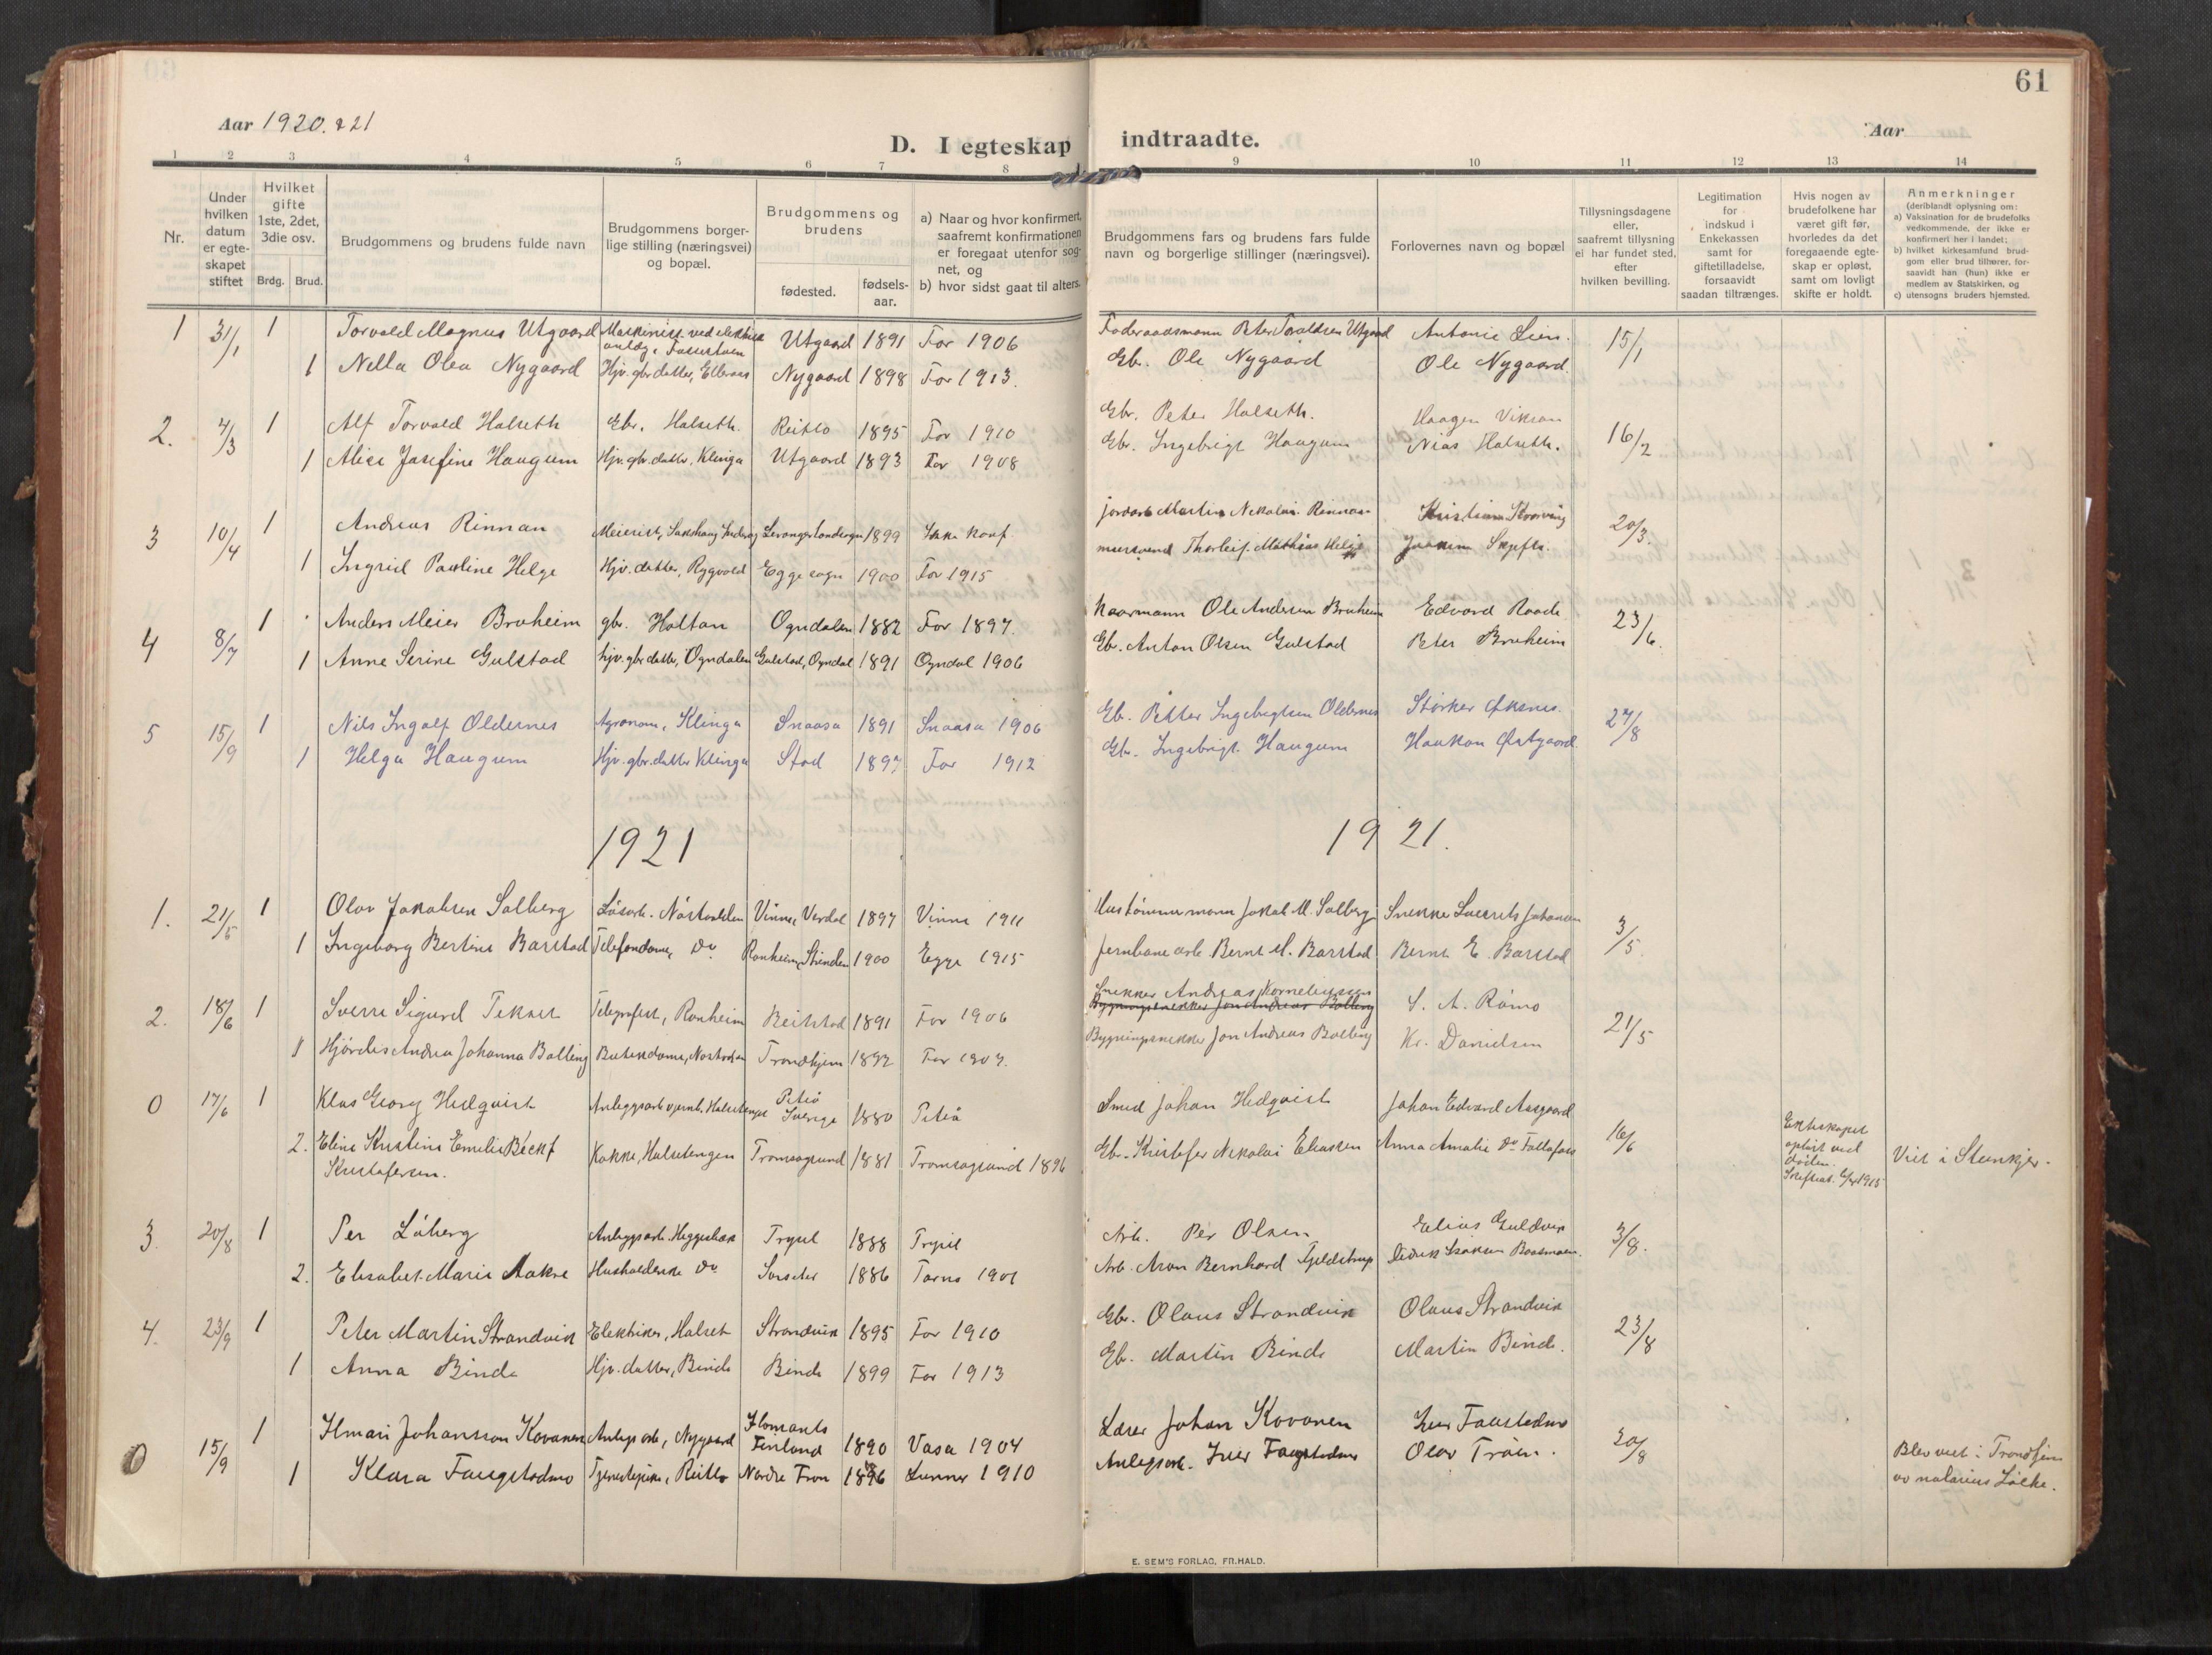 61
Aar 1920. & 21
Aar
D. I egteskap indtraadte.
1 2 3 4 5 6 7 8 9 10 11 12 13 14
Nr.
Under hvilken datum er egteskapet stiftet
Hvilket gifte 1ste, 2det, 3die osv.
Brdg. Brud.
Brudgommens og brudens fulde navn
Brudgommens borgerlige stilling (næringsvei) og bopæl.
Brudgommens og brudens
fødested.
fødselsaar.
a) Naar og hvor konfirmert, saafremt konfirmationen er foregaat utenfor sognet, og
b) hvor sidst gaat til alters.
Brudgommens fars og brudens fars fulde navn og borgerlige stillinger (næringsvei).
Forlovernes navn og bopæl
Tillysningsdagene eller, saafremt tillysning ei har fundet sted, efter hvilken bevilling.
Legitimation for indskud i Enkekassen samt for giftetilladelse, forsaavidt saadan tiltrænges.
Hvis nogen av brudefolkene har været gift før, hvorledes da det foregaaende egteskap er opløst, samt om lovligt skifte er holdt.
Anmerkninger (deriblandt oplysning om:
a) Vaksination for de brudefolks vedkommende, der ikke er konfirmert her i landet;
b) hvilket kirkesamfund brudgom eller brud tilhører, forsaavidt han (hun) ikke er medlem av Statskirken, og
c) utensogns bruders hjemsted.
1 31/1 1 Torvald Magnus Utgaard Maskinist ved elektrisk anlæg, Utgaard 1891 For 1906 Føderaadsmann Peter Toraldsen Utgaard Antonie Lien. 15/1
1 Nella Olea Nygaard Hjv. gbr datter, Nygaard 1898 For 1913. Gb. Ole Nygaard Ole Nygaard.
2. 4/3 1 Alf Torvald Halseth Gbr. Halseth. Reitlo 1895 For 1910 Gbr. Peter Halseth. Haagen Vikran 16/2
1 Alise Josefine Haugum Hjv. gbr. datter, Klinga Utgaard 1893 For 1908 Gbr. Ingebrigt Haugum Nias Halseth.
3 10/4 1 Andreas Rinnan Meierist, Sakshaug Inderøy Levanger landsogn 1899 Ikke konf. Jordarb Martin Nikolai Rinnan 20/3
1 Ingrid Pauline Helge Hjv. datter, Rygvold Egge sogn 1900 For 1915 Thorleif Mathias Helge Joakim Skjefte.
4 8/7 1 Anders Meier Bruheim gbr. Holtan Ogndalen 1882 For 1897. Kaarmann Ole Andersen Bruheim Edvard Raade 23/6.
1 Anne Serine Gulstad hjv. gbr datter, Ogndalen Gulstad, Ogndal 1891 Ogndal 1906 Gb. Anton Olsen Gulstad Peter Bruheim
5 15/9 1 Nils Ingolf Oldernes Agronom, Klinga Snaasa 1891 Snaasa 1906 Gb. Petter Ingebrigtsen Oldernes Størker Øksnes. 27/8
1 Helga Haugum Hjv. gbr. datter Klinga Stod 1897 For 1912 Gb. Ingebrigt Haugum Haakon Østgaard.
1921 1921.
1. 21/5 1 Olav Jakobsen Salberg Løsarb. Vinne, Verdal 1897 Vinne 1911 Hustømmermann Jakob M. Salberg Snekker Johansen 3/5.
1 Ingeborg Bertine Barstad Telefondame, Do Ranheim, Strinden 1900 Egge 1915 Jernbanearb. Bernt M. Barstad Bernt E. Barstad
2. 18/6 1 Sverre Sigurd Tekset Telegrafist, Ranheim Beitstad 1891 For 1906 Snekker Andreas Korneliussen S. A. Rømo 21/5
Bygningssnekker Jon Andreas Balling
1 Hjørdis Andrea Johanna Balling Butikdame, Trondhjem 1892 For 1907. Bygningssnekker Jon Andreas Balling Kr. Danielsen
0 17/6 1 Klas Georg Hedqvist Anleggsarb v jernb. Halsetengen Piteå Sverige 1880 Piteå Smed Johan Hedqvist Johan Edvard Aasgaard 16/6
2. Eline Kristine Emelie Beck f Kristofersen. Kokke, Halsetengen Tromsøysund 1881 Tromsøysund 1896 Gb. Kristofer Nikolai Eliassen Anna Amalie Do Egteskapet opløst ved døden. 1915 Viet i Steinkjer.
3. 20/8 1 Per Løberg Anlegsarb. Heggesbæk Trysil 1888 Trysil Arb. Per Olsen Elius 3/8.
2. Elisabet Marie Aakre Husholderske Do 1886 Tarna 1901 Arb. Aron Bernhard Gjeldstrup Didrik Isaksen Baasmoen.
4. 23/9 1 Peter Martin Strandvik Elektriker, Halset Strandvik 1895 For 1910 Gbr. Olaus Strandvik Olaus Strandvik 23/8
1 Anna Binde Hjv. datter, Binde Binde 1899 For 1913 Gb. Martin Binde Martin Binde.
0 15/9 1 Ilmari Johansson Kovanen Anlegsarb, Nygaard Ilomants Finland 1890 Vasa 1904 Lærer Johan Kovanen Iver Faugstadmo 30/8
1 Klara Faugstadmo Tjenestepike, Reitlo Nordre Fron 1896 Lunner 1910 Anlegsarb. Iver Faugstadmo Olav Trøen. Blev viet i Trondhjem av notarius Løcke.
E. SEM'S FORLAG, FR.HALD.